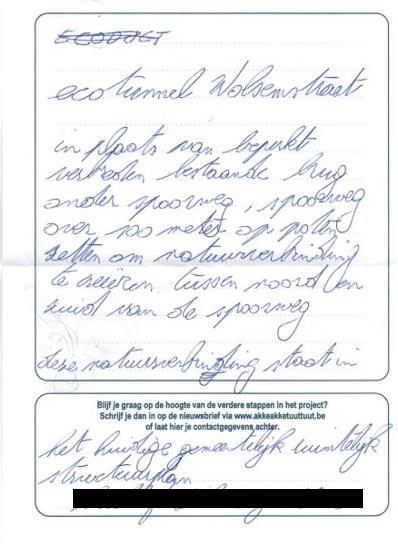 ECODUCT
ecotunnel Wolsemstraat
in plaats van beperkt
verbreden bestaande brug
onder spoorweg, spoorweg
over 100 meter op poten
zetten om natuurverbinding
te creëren tussen noord en
zuid van de spoorweg
deze natuurverbinding staat in
Blijf je graag op de hoogte van de verdere stappen in het project?
Schrijf je dan in op de nieuwsbrief via www.akkeakketuuttuut.be
of laat hier je contactgegevens achter.
het huidige gemeentelijk ruimtelijk
structuurplan